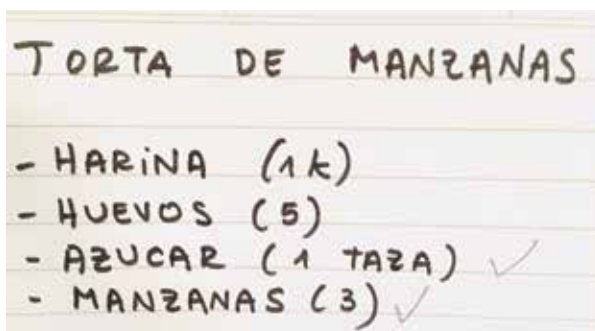 TORTA DE MANZANAS
- HARINA (1 k)
- HUEVOS (5)
- AZUCAR (1 TAZA) ✓
- MANZANAS (3) ✓